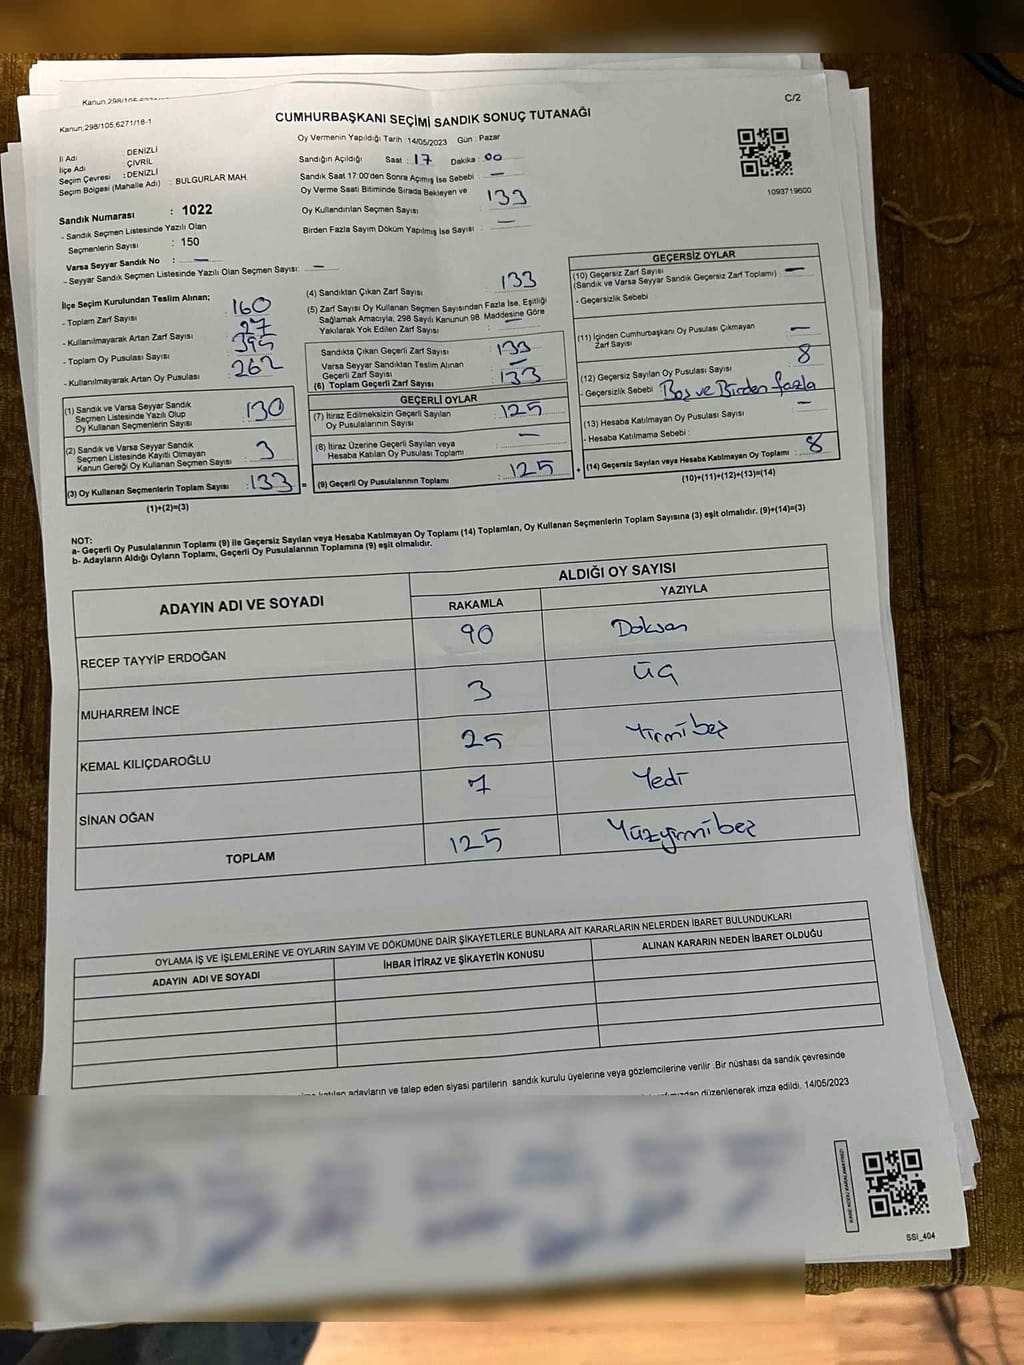 Kanun.298/105,6271/18-1
C/2
CUMHURBAŞKANI SEÇİMİ SANDIK SONUÇ TUTANAĞI
Oy Vermenin Yapıldığı Tarih : 14/05/2023 Gün : Pazar
İl Adı : DENİZLİ
İlçe Adı : ÇİVRİL
Seçim Çevresi : DENİZLİ
Seçim Bölgesi (Mahalle Adı) : BULGURLAR MAH.
Sandığın Açıldığı Saat : 17 Dakika : 00
Sandık Saat 17:00'den Sonra Açımış İse Sebebi : —
Oy Verme Saati Bitiminde Sırada Bekleyen ve
Oy Kullandırılan Seçmen Sayısı : 133
Birden Fazla Sayım Döküm Yapılmış İse Sayısı : —
1093719600
Sandık Numarası : 1022
- Sandık Seçmen Listesinde Yazılı Olan
Seçmenlerin Sayısı : 150
Varsa Seyyar Sandık No : —
- Seyyar Sandık Seçmen Listesinde Yazılı Olan Seçmen Sayısı: —
İlçe Seçim Kurulundan Teslim Alınan;
- Toplam Zarf Sayısı : 160
- Kullanılmayarak Artan Zarf Sayısı : 27
- Toplam Oy Pusulası Sayısı : 395
- Kullanılmayarak Artan Oy Pusulası : 262
(1) Sandık ve Varsa Seyyar Sandık
Seçmen Listesinde Yazılı Olup
Oy Kullanan Seçmenlerin Sayısı : 130
(2) Sandık ve Varsa Seyyar Sandık
Seçmen Listesinde Kayıtlı Olmayan
Kanun Gereği Oy Kullanan Seçmen Sayısı : 3
(3) Oy Kullanan Seçmenlerin Toplam Sayısı : 133 =
(1)+(2)=(3)
(4) Sandıktan Çıkan Zarf Sayısı : 133
(5) Zarf Sayısı Oy Kullanan Seçmen Sayısından Fazla İse, Eşitliği
Sağlamak Amacıyla, 298 Sayılı Kanunun 98 Maddesine Göre
Yakılarak Yok Edilen Zarf Sayısı : —
Sandıkta Çıkan Geçerli Zarf Sayısı : 133
Varsa Seyyar Sandıktan Teslim Alınan
Geçerli Zarf Sayısı : —
(6) Toplam Geçerli Zarf Sayısı : 133
GEÇERLİ OYLAR
(7) İtiraz Edilmeksizin Geçerli Sayılan
Oy Pusulalarının Sayısı : 125
(8) İtiraz Üzerine Geçerli Sayılan veya
Hesaba Katılan Oy Pusulası Toplamı : —
(9) Geçerli Oy Pusulalarının Toplamı : 125 +
GEÇERSİZ OYLAR
(10) Geçersiz Zarf Sayısı
(Sandık ve Varsa Seyyar Sandık Geçersiz Zarf Toplamı) : —
- Geçersizlik Sebebi
(11) İçinden Cumhurbaşkanı Oy Pusulası Çıkmayan
Zarf Sayısı : —
(12) Geçersiz Sayılan Oy Pusulası Sayısı : 8
- Geçersizlik Sebebi : Boş ve Birden fazla
(13) Hesaba Katılmayan Oy Pusulası Sayısı : —
- Hesaba Katılmama Sebebi :
(14) Geçersiz Sayılan veya Hesaba Katılmayan Oy Toplamı : 8
(10)+(11)+(12)+(13)=(14)
NOT:
a- Geçerli Oy Pusulalarının Toplamı (9) ile Geçersiz Sayılan veya Hesaba Katılmayan Oy Toplamı (14) Toplamları, Oy Kullanan Seçmenlerin Toplam Sayısına (3) eşit olmalıdır. (9)+(14)=(3)
b- Adayların Aldığı Oyların Toplamı, Geçerli Oy Pusulalarının Toplamına (9) eşit olmalıdır.
ADAYIN ADI VE SOYADI ALDIĞI OY SAYISI
RAKAMLA YAZIYLA
RECEP TAYYİP ERDOĞAN 90 Doksan
MUHARREM İNCE 3 ÜÇ
KEMAL KILIÇDAROĞLU 25 Yirmi beş
SİNAN OĞAN 7 Yedi
TOPLAM 125 Yüzyirmi beş
OYLAMA İŞ VE İŞLEMLERİNE VE OYLARIN SAYIM VE DÖKÜMÜNE DAİR ŞİKAYETLERLE BUNLARA AİT KARARLARIN NELERDEN İBARET BULUNDUKLARI
ADAYIN ADI VE SOYADI İHBAR İTİRAZ VE ŞİKAYETİN KONUSU ALINAN KARARIN NEDEN İBARET OLDUĞU
adayların ve talep eden siyasi partilerin sandık kurulu üyelerine veya gözlemcilerine verilir .Bir nüshası da sandık çevresinde
düzenlenerek imza edildi. 14/05/2023
SSİ_404